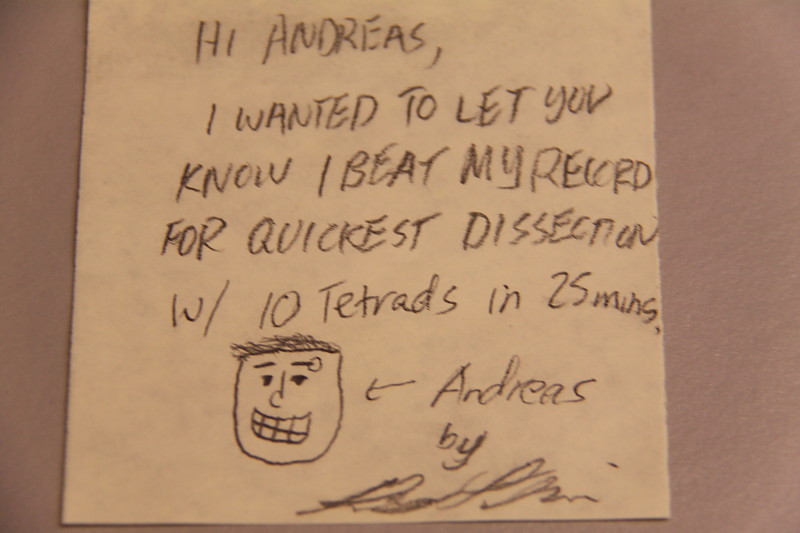 HI ANDREAS,
I WANTED TO LET YOU
KNOW I BEAT MY RECORD
FOR QUICKEST DISSECTION
W/ 10 Tetrads in 25 mins.
← Andreas
by